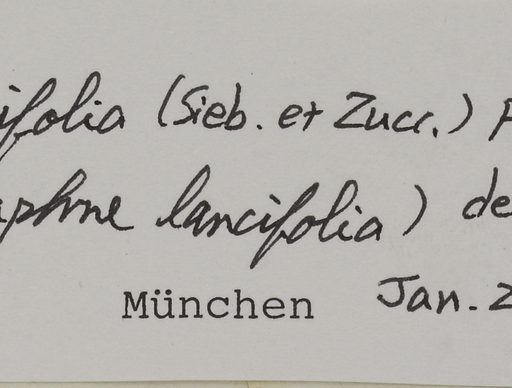 ifolia (Sieb. et Zucc.)
aphne lancifolia) de
München Jan. 2